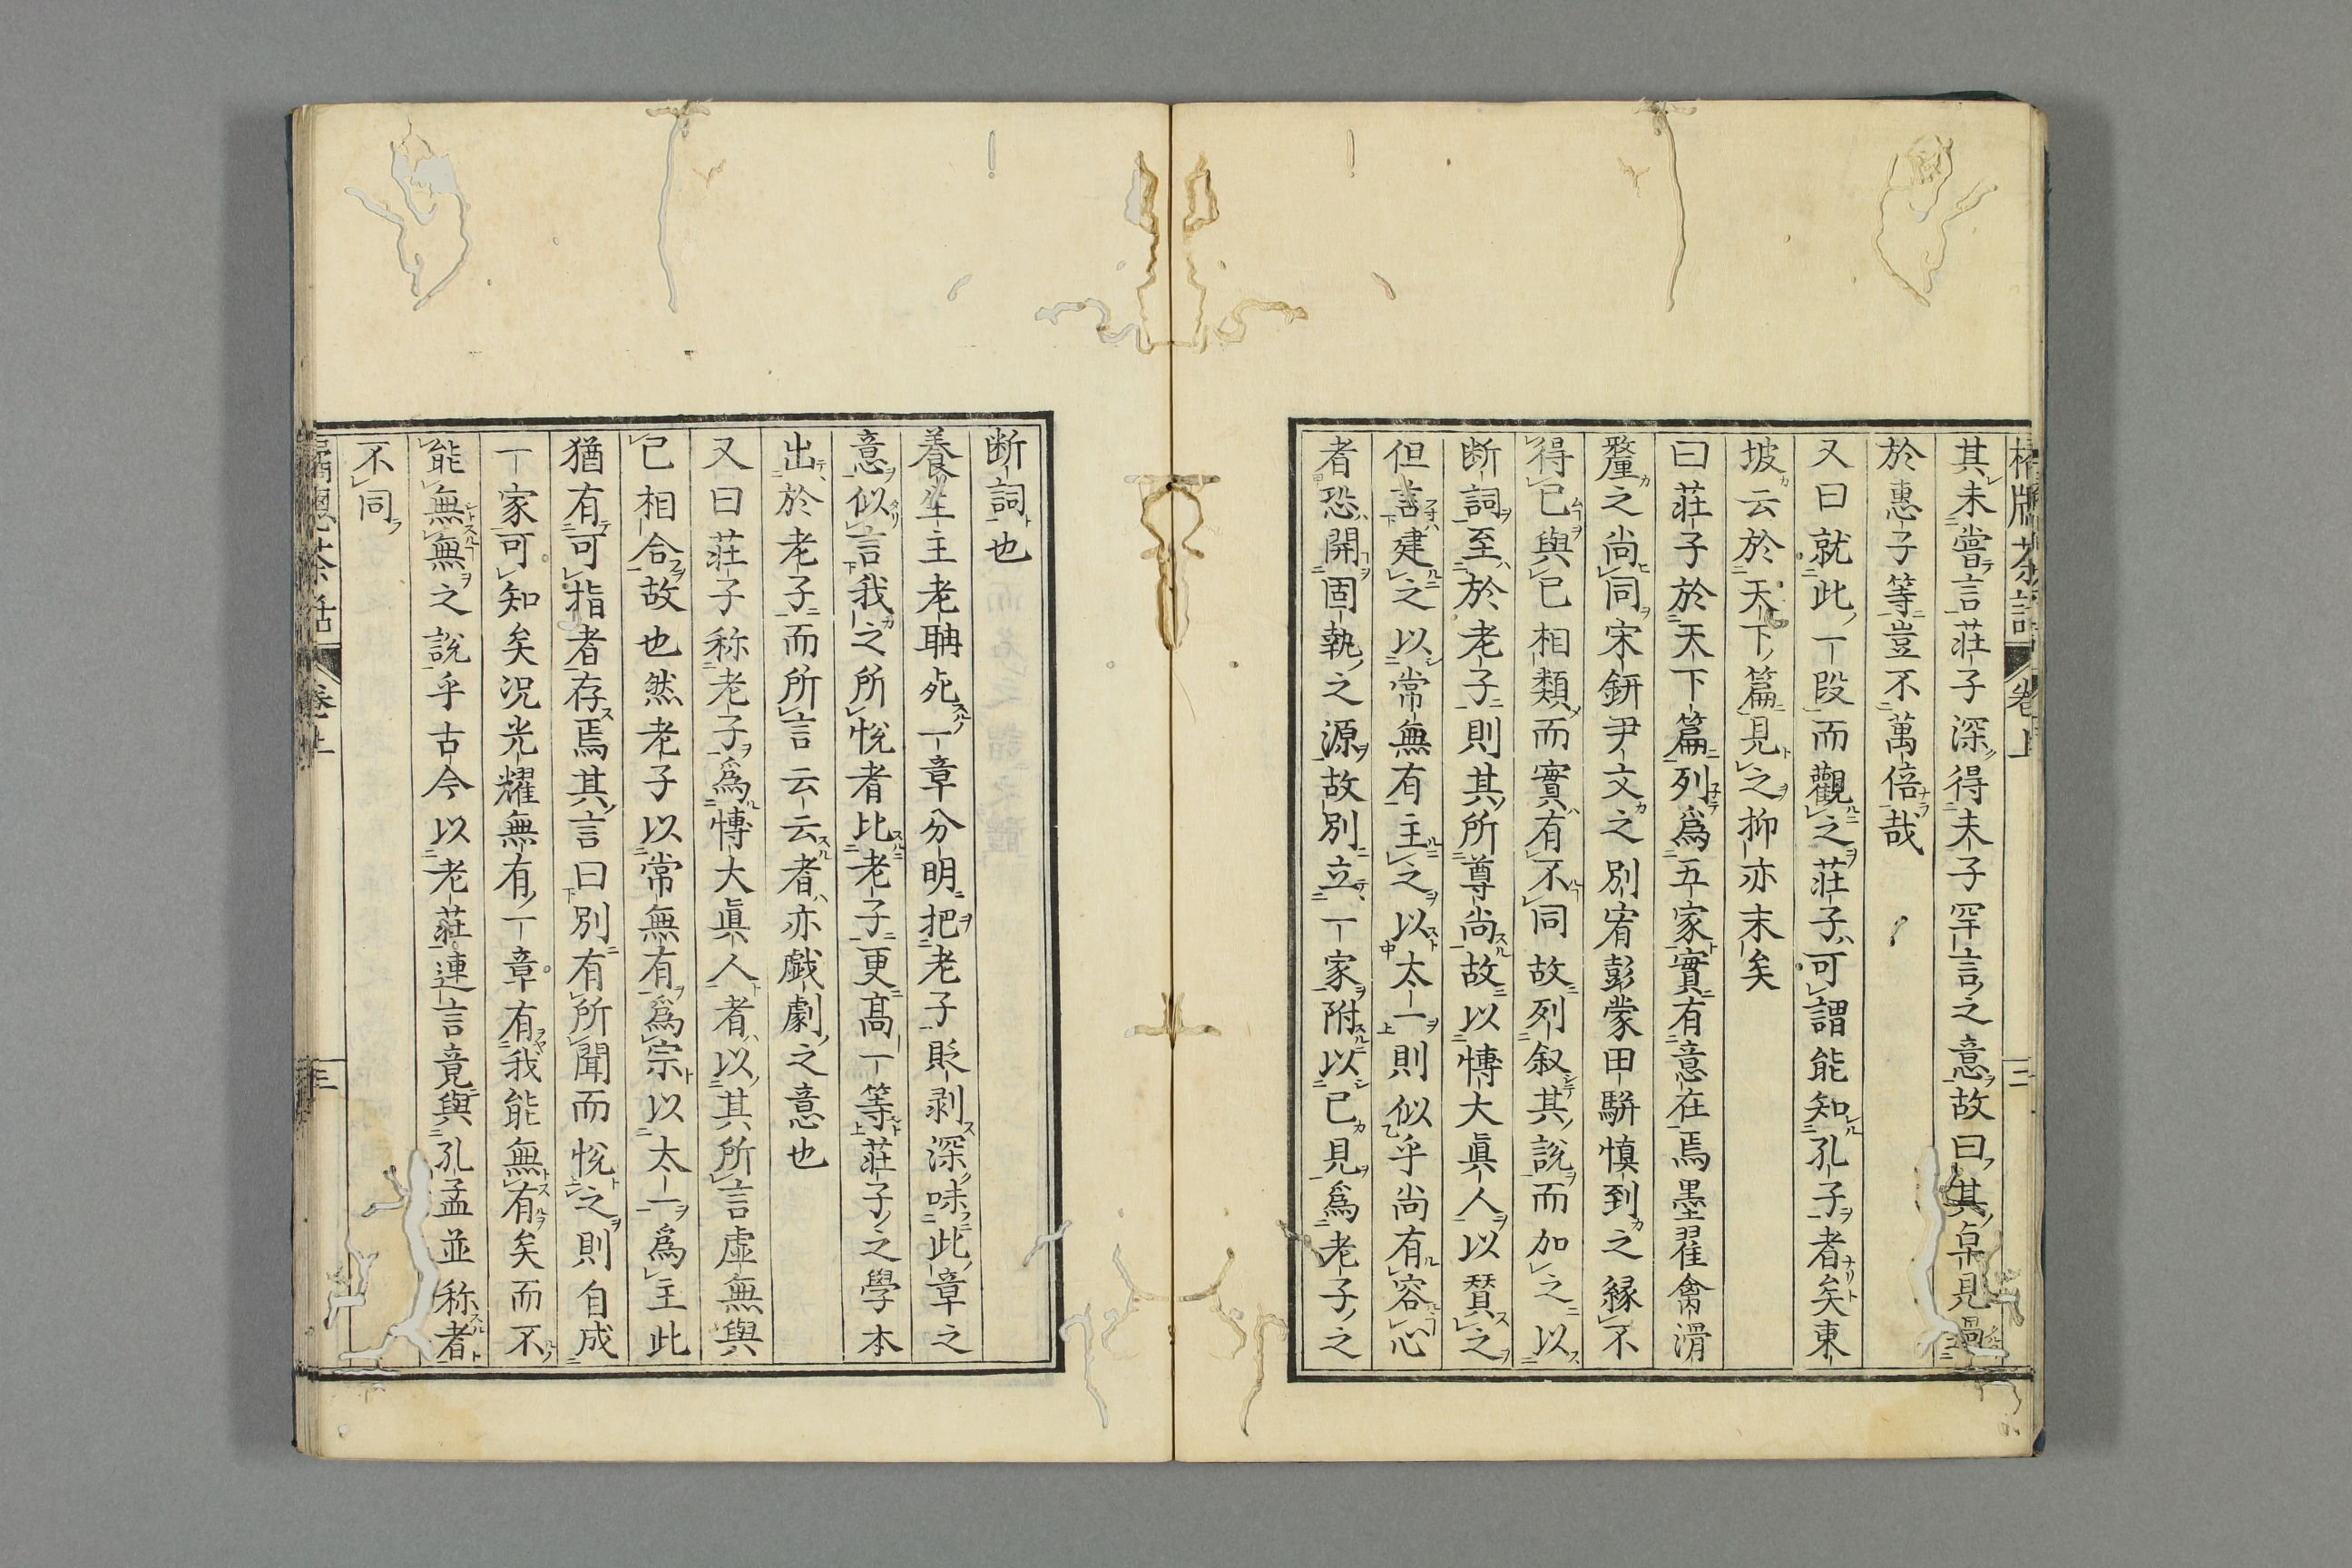 茶話 卷上 三
其未嘗言莊子深得夫子罕言之意故曰其卓見過
於惠子等豈不萬倍哉
又曰就此一段而觀之莊子可謂能知孔子者矣東
坡云於天下篇見之抑亦末矣
曰莊子於天下篇列爲五家實有意在焉墨翟禽滑
釐之尚同宋鈃尹文之別宥彭蒙田駢慎到之緣不
得已與已相類而實有不同故列叙其說而加之以
断詞至於老子則其所尊尚故以博大眞人以賛之
但言建之以常無有主之以太一則似乎尚有容心
者恐開固執之源故別立一家附以己見爲老子之
断詞也
養生主老聃死一章分明把老子貶剥深味此章之
意似言我之所悅者比老子更髙一等莊子之學本
出於老子而所言云云者亦戱劇之意也
又曰莊子称老子爲博大眞人者以其所言虛無與
己相合故也然老子以常無有爲宗以太一爲主此
猶有可指者存焉其言曰別有所聞而悅之則自成
一家可知矣況光耀無有一章有我能無有矣而不
能無無之說乎古今以老莊連言竟與孔孟並称者
不同
茶話 卷上 三